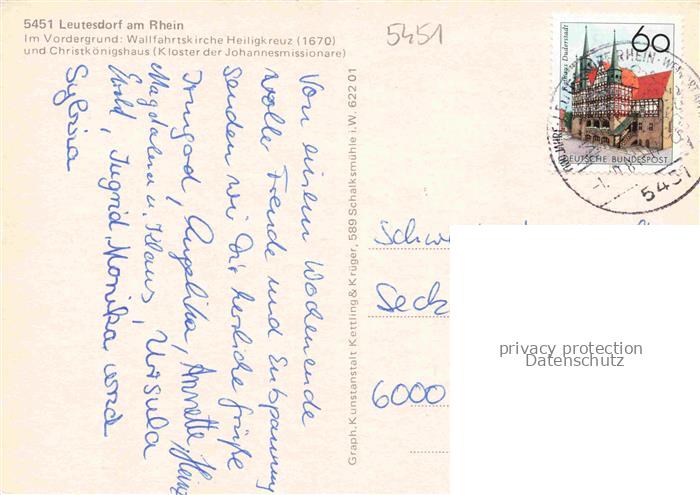 5451 Leutesdorf am Rhein
Im Vordergrund: Wallfahrtskirche Heiligkreuz (1670)
und Christkönigshaus (Kloster der Johannesmissionare)
5451
Von einem Wochenende
volle Freude und Entspannung
senden wir Dir herzliche Grüße
Irmgard, Angelika, Annette, Heinz
Magdalena u. Klaus, Ursula
Ewald, Ingrid, Monika, und
Sylvia
Graph. Kunstanstalt Kettling & Krüger, 589 Schalksmühle i.W. 622 01
Rathaus Duderstadt
60
DEUTSCHE BUNDESPOST
5451
Schw
6000
privacy protection
Datenschutz